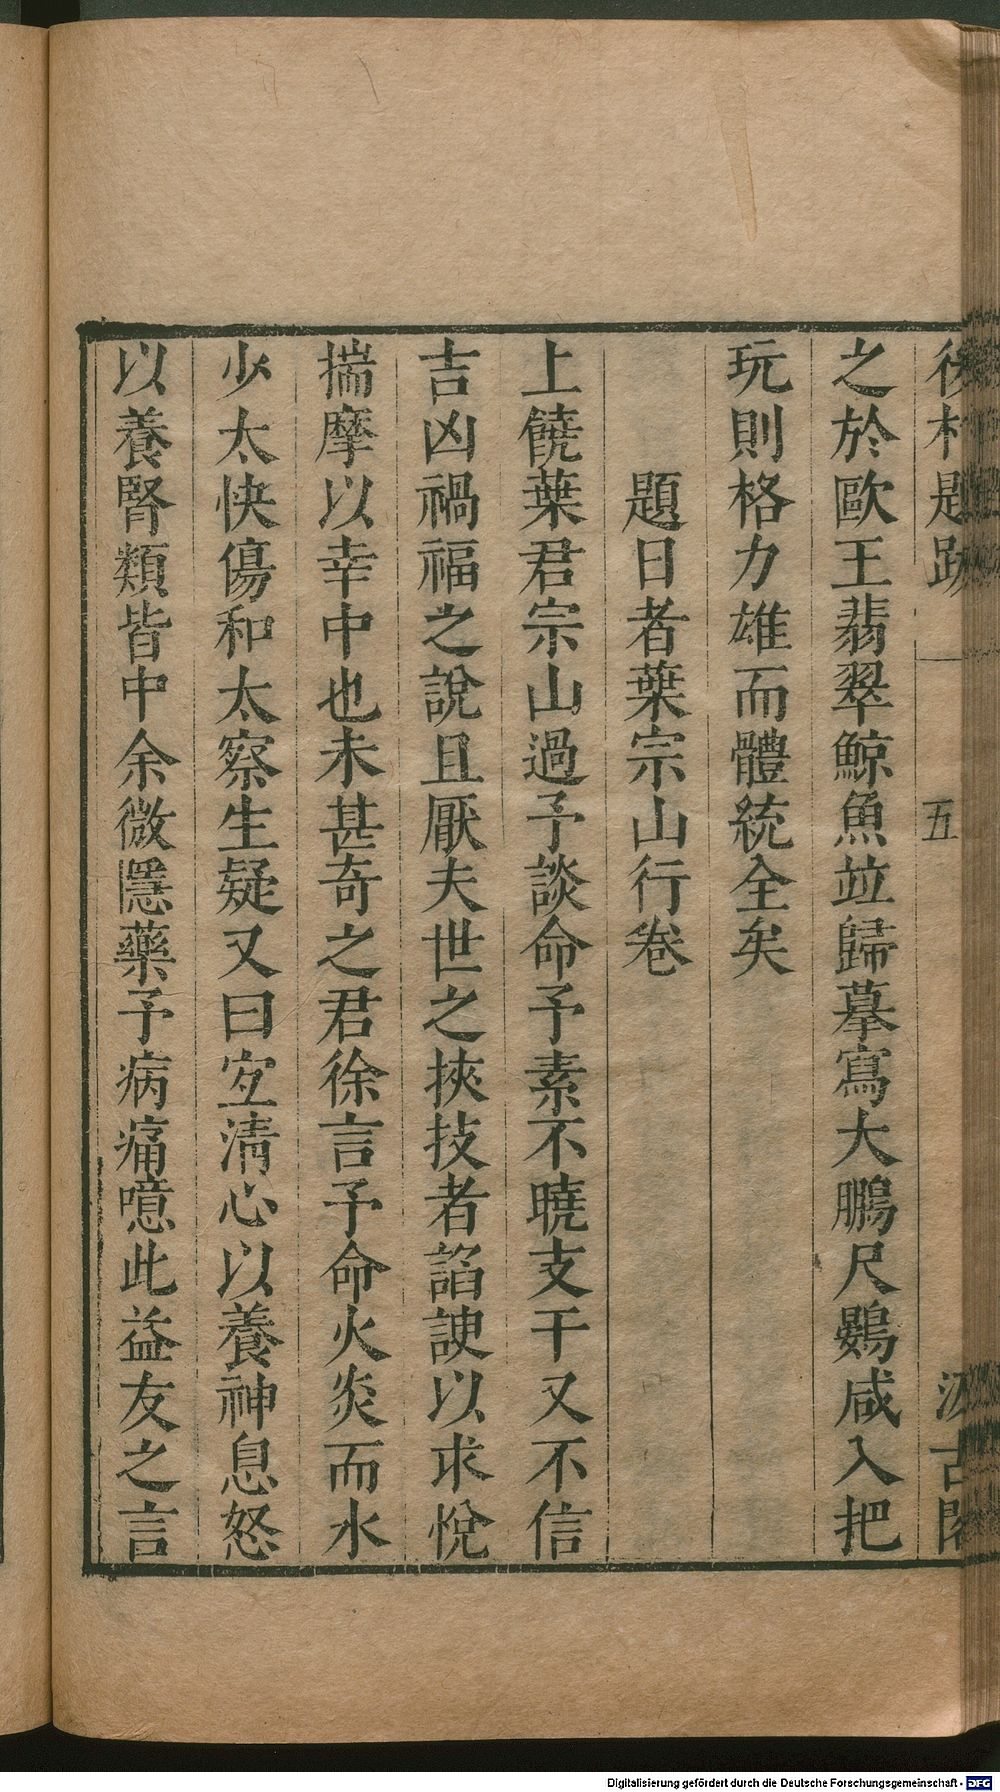 後村題跋
五
汲古閣
之於歐王翡翠鯨魚竝歸摹寫大鵬尺鷃咸入把
玩則格力雄而體統全矣
題日者葉宗山行卷
上饒葉君宗山過予談命予素不曉支干又不信
吉凶禍福之說且厭夫世之挾技者諂諛以求悅
揣摩以幸中也未甚奇之君徐言予命火炎而水
少太快傷和太察生疑又曰宐清心以養神息怒
以養腎類皆中余微隱藥予病痛噫此益友之言
Digitalisierung gefördert durch die Deutsche Forschungsgemeinschaft - DFG